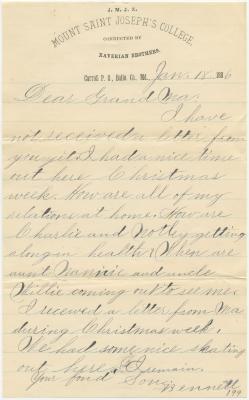 J. M. J. X.
MOUNT SAINT JOSEPH'S COLLEGE,
CONDUCTED BY
XAVERIAN BROTHERS.
Carroll P. O., Balto. Co., Md., Jan. 18 1886
Dear Grand Ma:
I have
not received a letter from
you yet. I had a nice time
out here Christmas
week. How are all of my
relations at home. How are
Charlie and Notley getting
along in health? When are
aunt Nannie and uncle
Willie coming out to see me.
I receved a letter from Ma
during Christmas week.
We had some nice skating
out here. I remain
Your fond Son,
Bennett
199